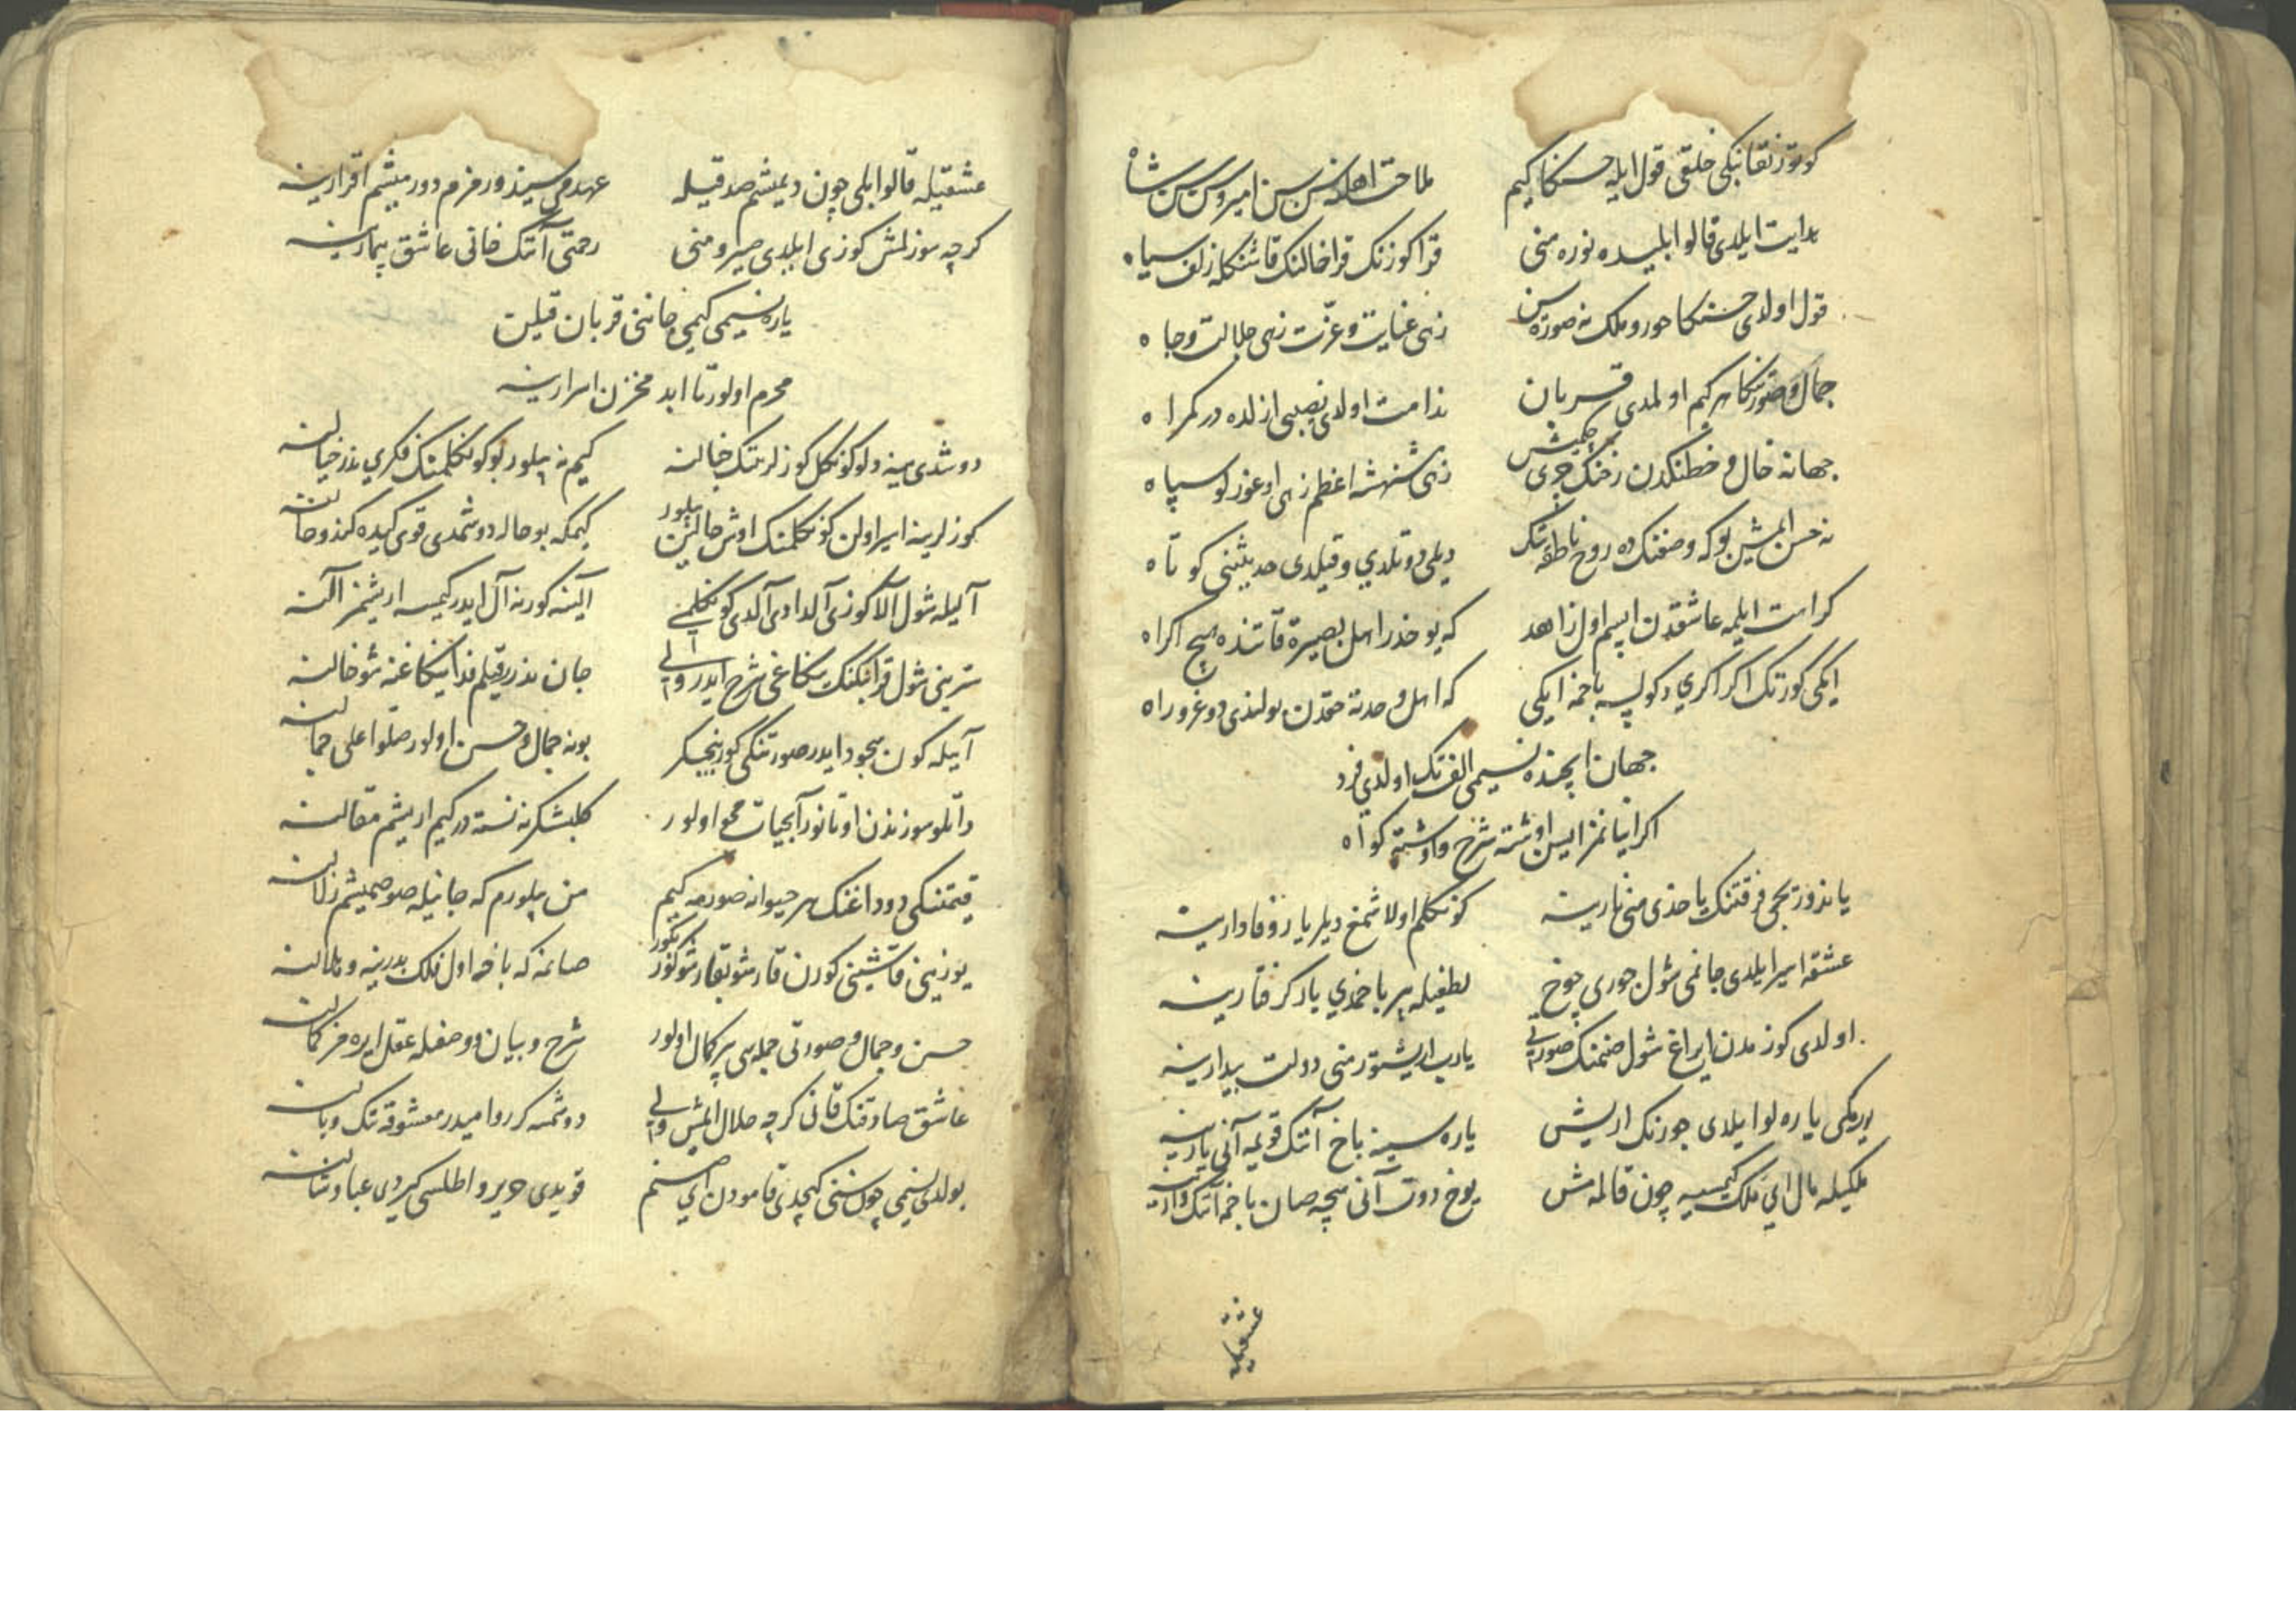 كوتور نقابنكی خلقی قول ایله حسنكا كیم
ملاحت اهلنه سن سن امیر و سن سن شاه
هدایت ایلدی قالوا بلیده نوره منی
قرا كوزنك قرا خالنك قاشنكله زلف سیاه
قول اولدی حسنكا حور و ملك نه صورة سن
زهی عنایت و عزت زهی جلالت و جاه
جمال و صورتنكا هر كیم اولمدی قربان
ندامت اولدی نصیبی ازلده در كمراه
جهانه خال و خطنكدن زخنك چری چكمیش
زهی شهنشه اعظم زهی اوغورلو سپاه
نه حسن ایمیش بو كه وصفنك ده روح ناطقه نك
دیلی دوتلدی و قیلدی حدیثنی كوتاه
كراهت ایلمه عاشقدن ایم اول زاهد
كه یوخدر اهل بصیرة قاتنده هیچ اكراه
ایكی كورنك اكر اكری دكولسه باخمه ایكی
كه اهل وحدته حقدن بولندی دوغرو راه
جهان ایچنده نسیمی الف تك اولدی فرد
اكر اینانمز ایسن اوشته شرح و اوشته كواه
یاندورتجی فرقتنك یاخدی منی نارینه
كونكلم اولاشمغ دیلر یار وفادارینه
عشقه اسیر ایلدی جانمی شول حوری چوخ
لطفیله بر باخمدی یار كرفتارینه
اولدی كوزمدن ایراغ شول صنمنك صورتی
یارب ایریشتور منی دولت بیدارینه
یوركی یاره لو ایلدی جورنك اریش
یاره سینه باخ آننك قویمه آنی یارینه
ملكیله مال ای ملك كیمسیه چون قالمه مش
یوخ دوت آنی هیچه صان باخمه آننك وارینه
عشقیله
عشقیله قالوا بلی چون دیمیشم صدقیله
عهدمی سیندورمزم دورمیشم اقرارینه
كرچه سوزلمش كوزی ایلدی خسرو منی
رحمتی آننك قانی عاشق بیمارینه
یاره نسیمی كیمی جاننی قربان قیلن
محرم اولور تا ابد مخزن اسرارینه
دوشدی ینه دلو كونكل كوزلرینك خیالنه
كیم نه بیلور بو كونكلمنك فكری ندر خیالنه
كوزلرینه اسیر اولن كونكلمنك اوش حالین بیلور
كیمكه بو حاله دوشمدی قوی كیده كندو حالنه
آلیله شول آلا كوزی آلدادی آلدی كونكلمنی
آلینه كورنه آل ایدر كیمسه اریشمز آلنه
سربنی شول قرا بنكنك بنكا غمی شرح ایدر ولی
جان ندر قیلم فدا بنكا غنه شو خالنه
آییله كون سجود ایدر صورتنكی كوریجیكر
بونه جمال و حسن اولور صلوا علی جمالنه
داتلو سوزندن اوتانور آبحیات محو اولور
كلبشكر نه نسته در كیم اریشم مقالنه
قیمتنكی دوداغنك هر حیوانه صورمه كیم
من بیلورم كه جانیله صوصمیشم زلالنه
یوزینی قاشینی كورن قادر شو بقادر شو كور
صانمه كه باخه اول فلك بدرینه و هلالنه
حسن و جمال و صورتی جمله سی بر كمال اولور
شرح و بیان و وصفیله عقل ایره مز كمالنه
عاشق صادقنك قانی كرچه حلال ایمیش ولی
دوشمسه كر روا میدر معشوقه نك وبالنه
بولدی نسیمی چون سنی كیچدی قامودن ای صنم
قویدی حریر و اطلسی كیردی عبا و شالنه